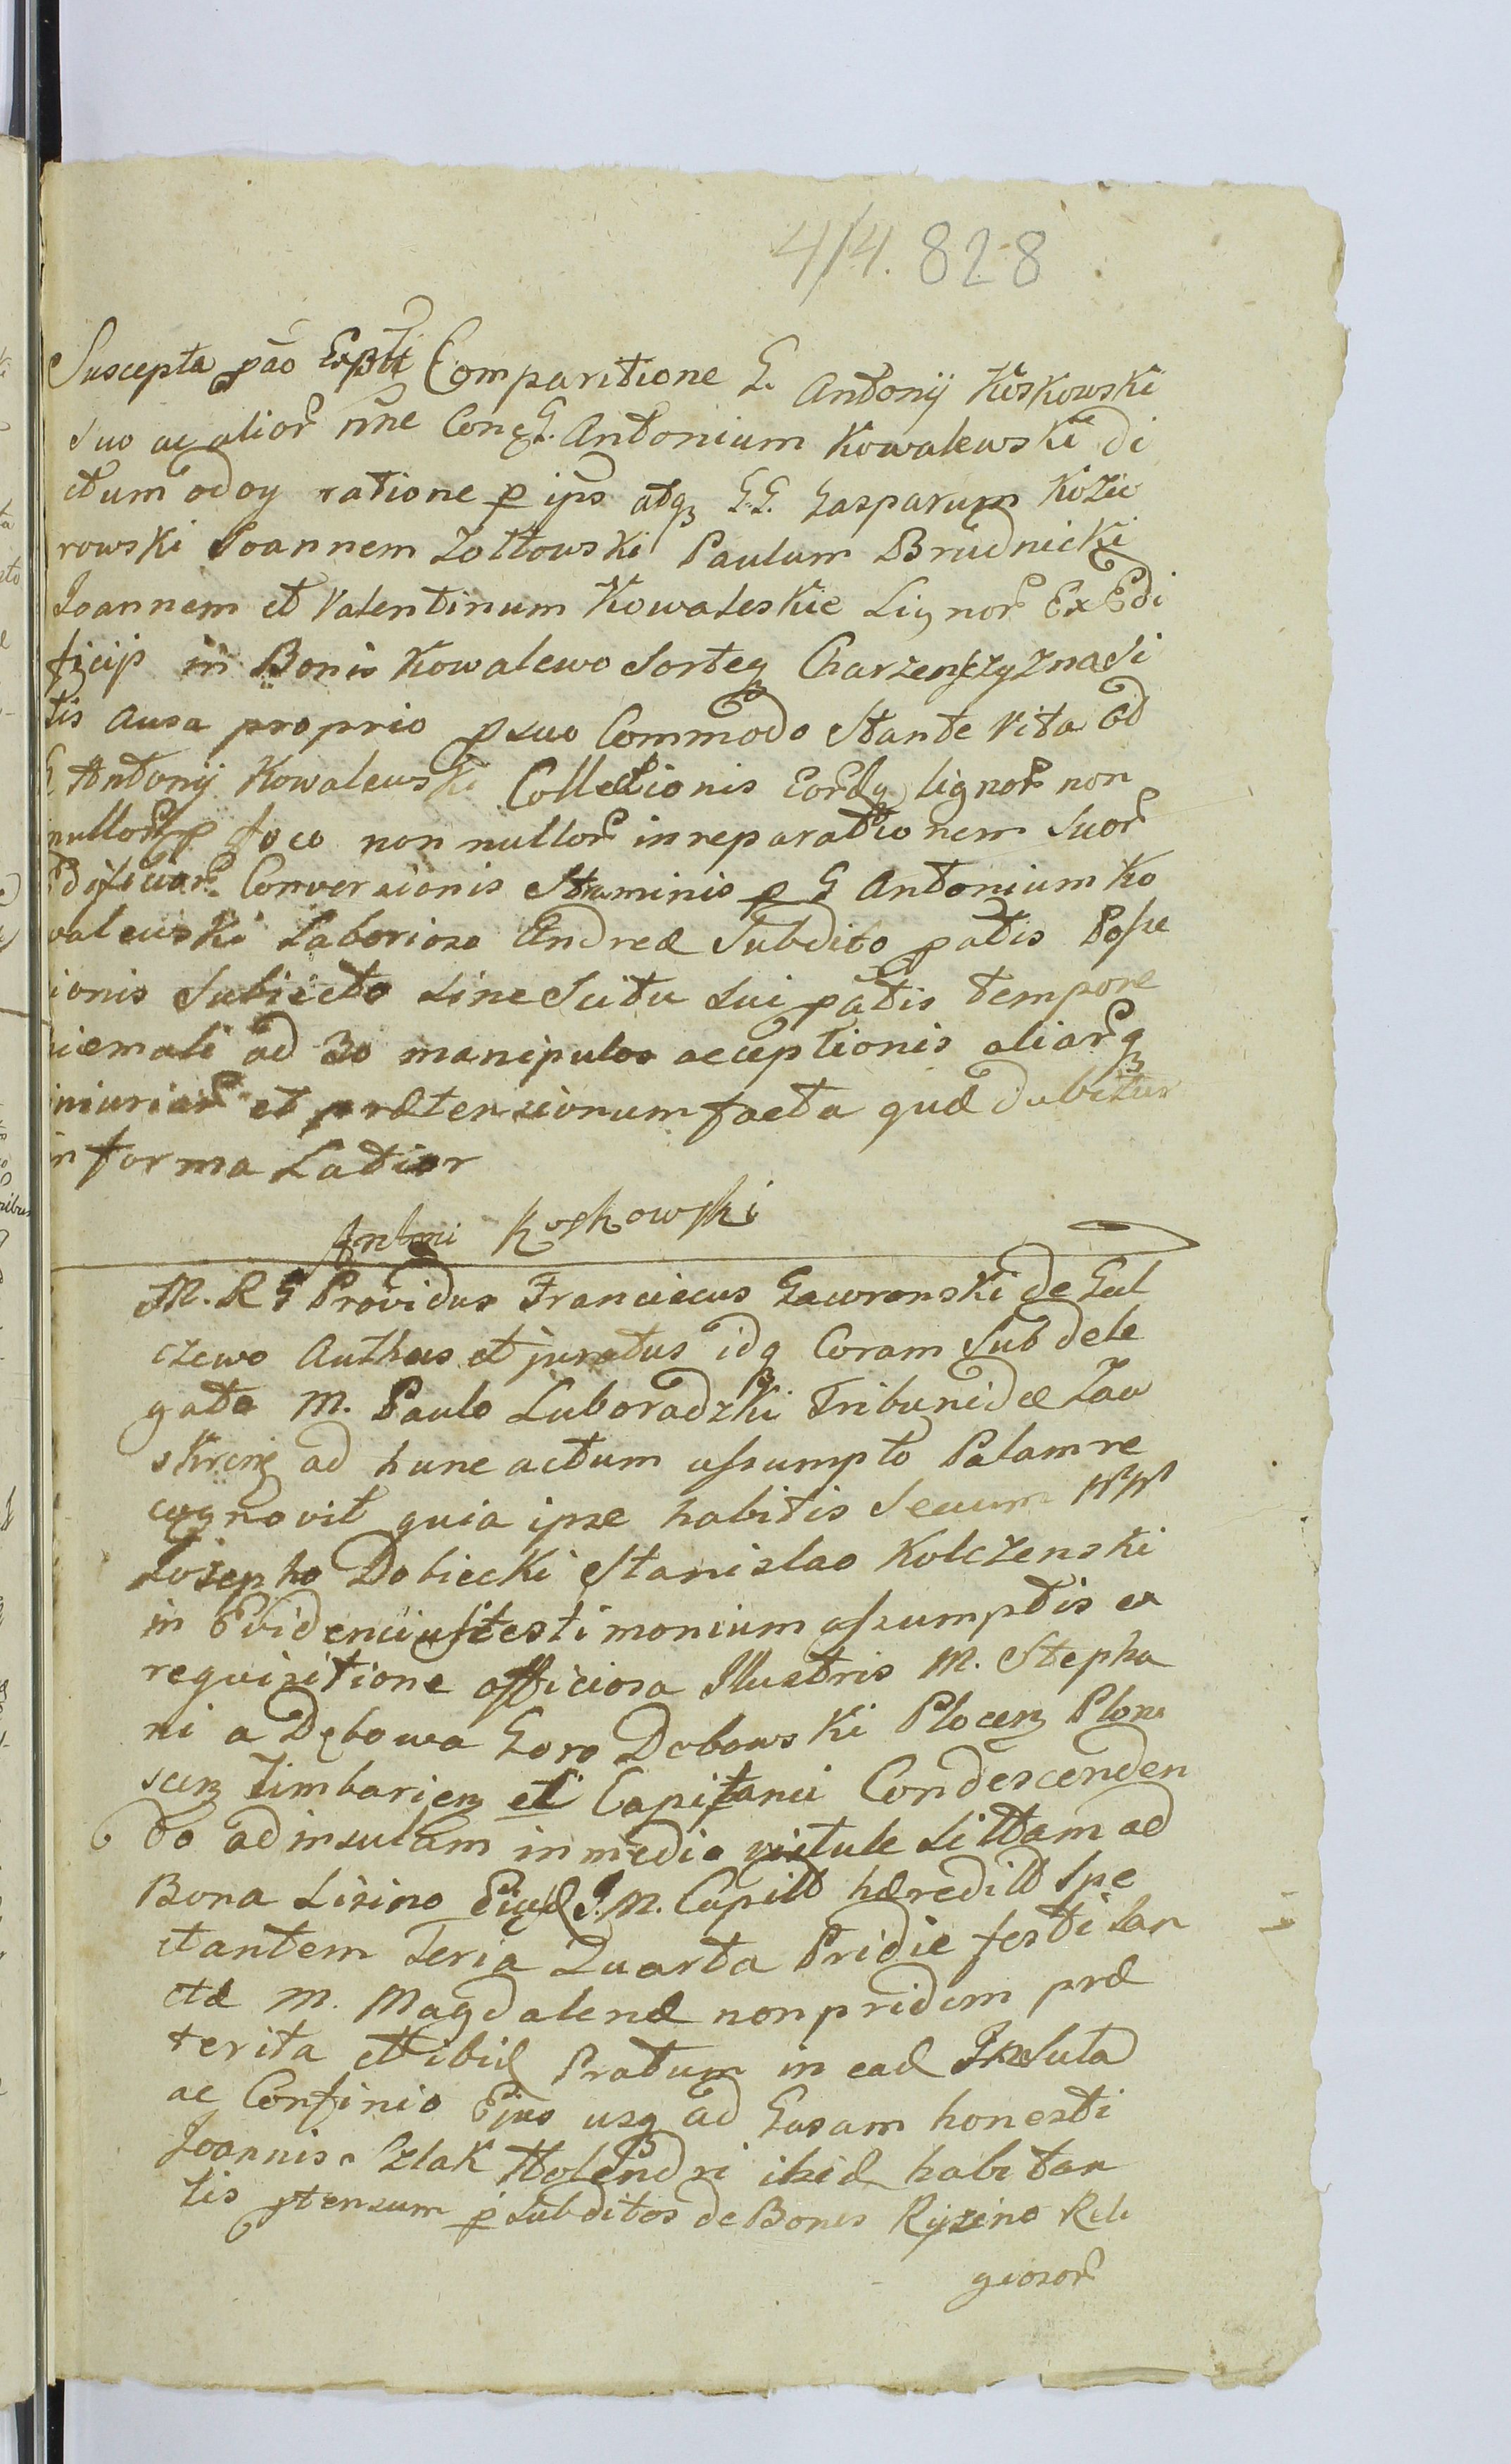 414. 828
Suscepta pāo Comparitione G. Antonij Koskowski
suo ac alior nne Con G. Antonium Kowalewski di
ctum odoy ratione p ips atq G.G. Gasparum Koziе
rowski Joannem Zołtowski Paulum Brudnicki
Joannem et Valentinum Kowaleskie Lignor Ex Edi
ficijs in Bonis Kowalewo Sorteq Charzenszyzna Si
tis Ausa proprio p suo Commodo Stante Vita Od
G Antonij Kowalewski Collectionis Eordq lignor non
nullor p foco non nullor in reparationem Suor
Edificior Conversionis Staminis p G Antonium Ko
walewski Laborioso Andreæ Subdito patis Posse
ionis Subiecto Sine Scitu Sui patis tempore
hiemali ad 30 manipulos acceptionis aliarq
iniuriar et prætensionum facta quæ dabitur
in forma Latior
Antoni Koskowski
M. R G Providus Franciscus Gawronski de Gul
czewo Authus et juratus idq Coram Subdele
gato M. Paulo Luboradzki Tribunidæ Zaw
skren ad hunc actum assumpto Palam re
cognovit quia ipse habitis Secum WW
Josepho Dobiecki Stanislao Kolczenski
in Evidencius testimonium assumptis ex
requisitione officiosa Illustris M. Stepha
ni a Dębowa Gora Dębowski Plocen Plon
scen Zimbarien et Capitanei Condescenden
do ad insulam in medio vistule Sittam ad
Bona Lisino Eiusd J.M. Capitt hæreditt Spe
ctantem Feria Quarta Pridie festi San
ctæ M. Magdalenæ non pridem præ
terita et ibid Pratum in ead Insula
ac Confinio Ejus usq ad Gasam honesti
Joannis Czlak Holendri ibid habitan
tis ptensum p Subditos de Bonis Ryzino Reli
giosor